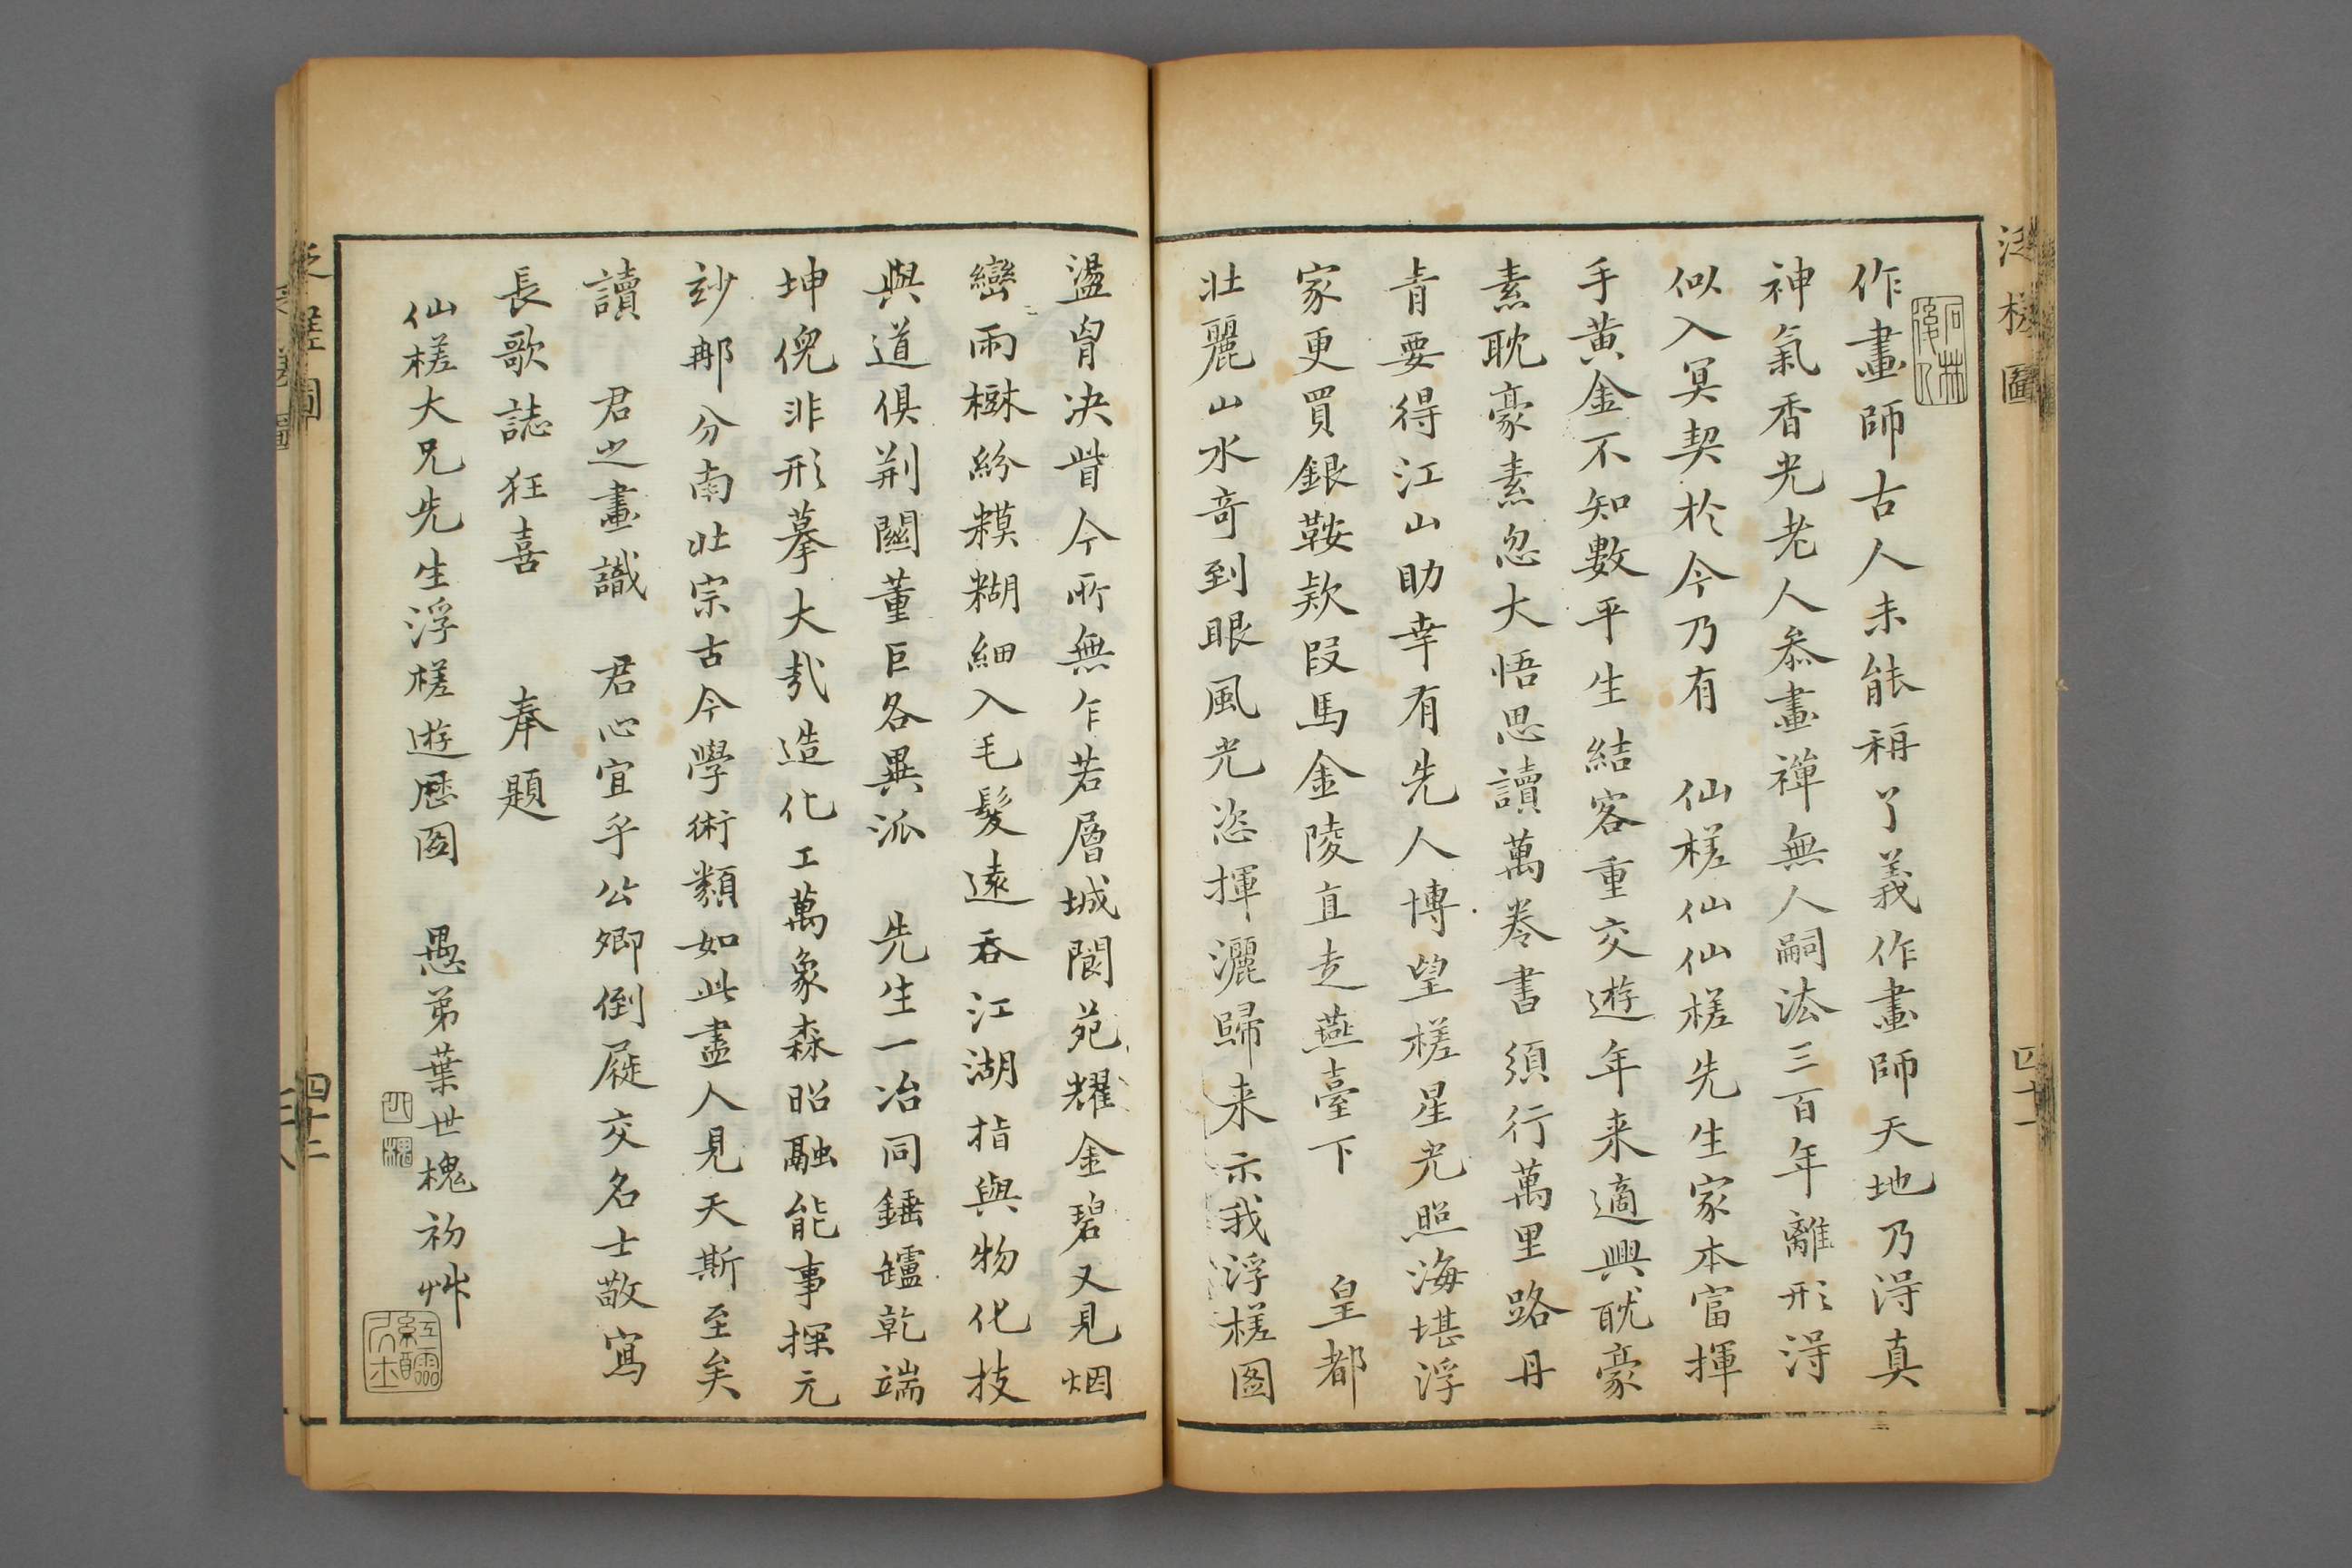 泛槎圖
四十一
石林後人
作畫師古人未能稱了義作畫師天地乃淂真
神氣香光老人叅畫禪無人嗣法三百年離形淂
似入冥契於今乃有　仙槎仙仙槎先生家本富揮
手黃金不知數平生結客重交遊年来適興耽豪
素耽豪素忽大悟思讀萬卷書須行萬里路丹
青要得江山助幸有先人博望槎星光照海堪浮
家更買銀鞍款段馬金陵直走燕臺下　皇都
壯麗山水奇到眼風光恣揮灑歸来示我浮槎圖
盪胷决眥今所無乍若層城閬苑耀金碧又見烟
巒雨樾紛糢糊細入毛髮遠吞江湖指與物化技
與道俱荆關董巨各異派　先生一冶同錘鑪乾端
坤倪非形摹大㢤造化工萬象森昭融能事探元
玅那分南北宗古今學術類如此盡人見天斯至矣
讀　君之畫識　君心宜乎公卿倒屣交名士敬寫
長歌誌狂喜　奉題
仙槎大兄先生浮槎遊歷圖　愚弟葉世槐初艸
世槐
泛槎圖
四十二